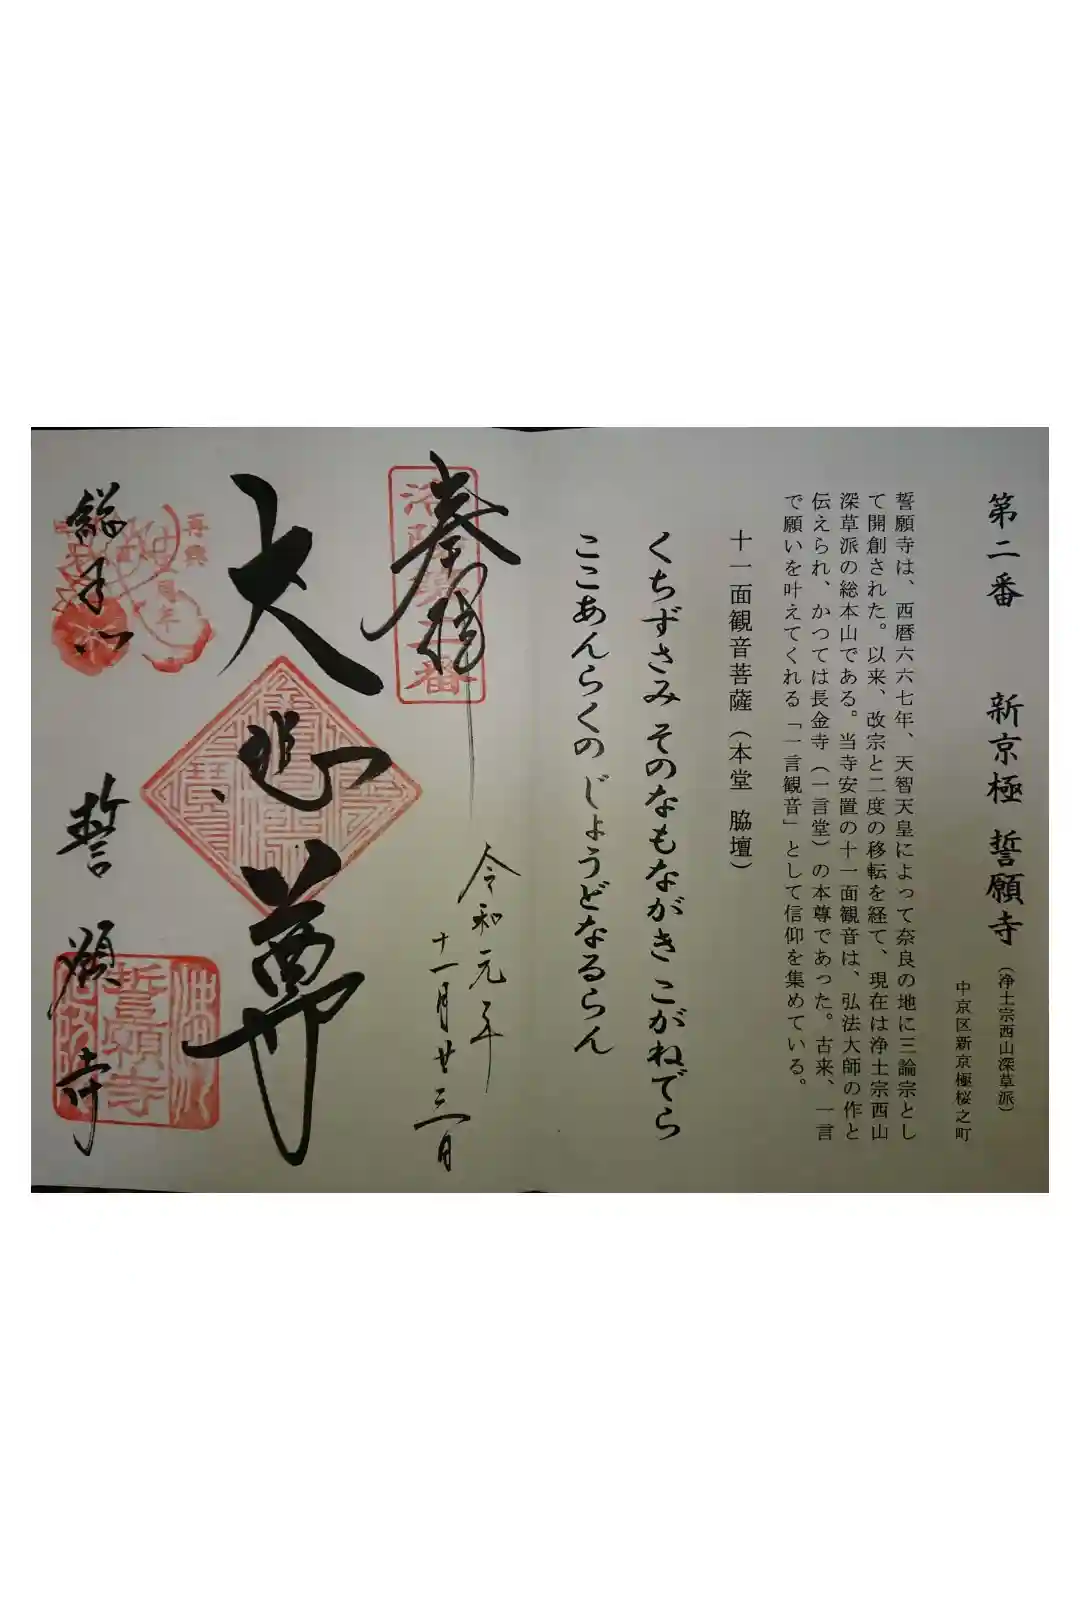 第二番　新京極　誓願寺（浄土宗西山深草派）
中京区新京極桜之町
誓願寺は、西暦六六七年、天智天皇によって奈良の地に三論宗とし
て開創された。以来、改宗と二度の移転を経て、現在は浄土宗西山
深草派の総本山である。当寺安置の十一面観音は、弘法大師の作と
伝えられ、かつては長金寺（一言堂）の本尊であった。古来、一言
で願いを叶えてくれる「一言観音」として信仰を集めている。
十一面観音菩薩（本堂　脇壇）
くちずさみ そのなもながき こがねでら
ここあんらくの じょうどなるらん
奉拝
洛陽第二番
令和元年
十一月廿三日
大悲尊
再興
総本山
誓願寺
誓願寺